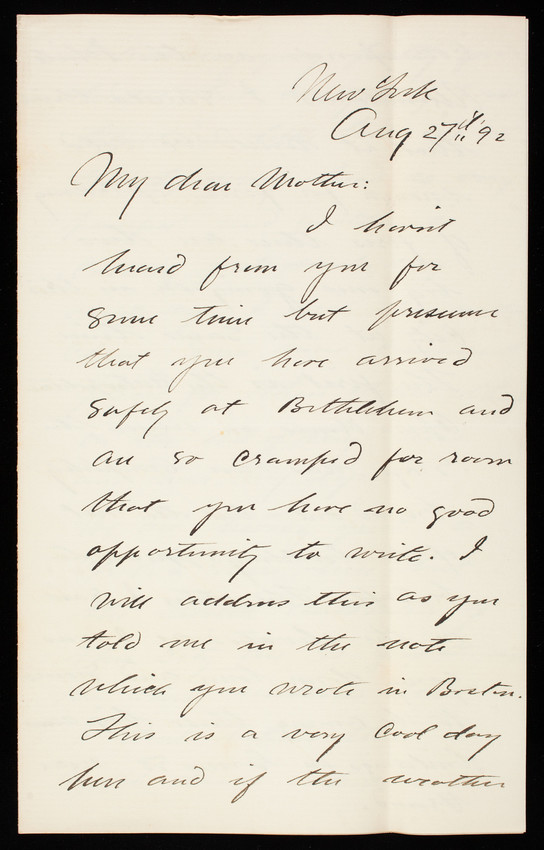 New York
Aug 27th '92
My dear Mother:
I havn't
heard from you for
some time but presume
that you have arrived
safely at Bethlehem and
are so cramped for room
that you have no good
opportunity to write. I
will address this as you
told me in the note
which you wrote in Boston.
This is a very cool day
here and if the weather